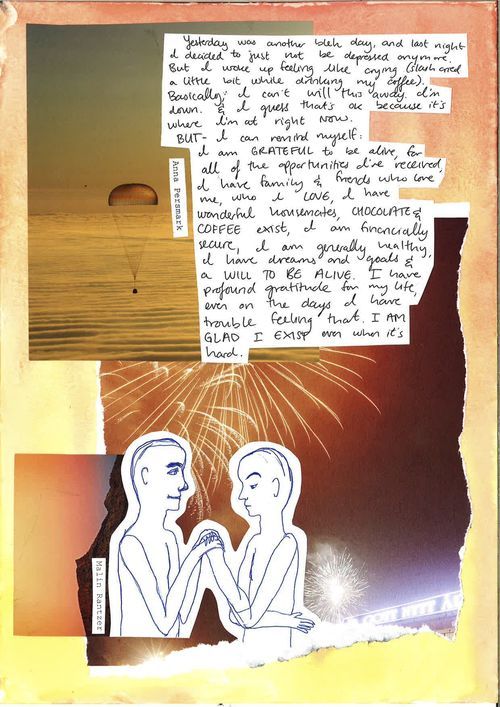 Yesterday was another bleh day, and last night
I decided to just not be depressed anymore.
But I woke up feeling like crying (slash cried
a little bit while drinking my coffee).
Basically: I can't will this away. I'm
down. & I guess that's ok because it's
where I'm at right now.
BUT- I can remind myself:
I am GRATEFUL to be alive, for
all of the opportunities I've received,
I have family & friends who love
me, who I LOVE, I have
wonderful housemates, CHOCOLATE &
COFFEE exist, I am financially
secure, I am generally healthy,
I have dreams and goals &
a WILL TO BE ALIVE. I have
profound gratitude for my life,
even on the days I have
trouble feeling that. I AM
GLAD I EXIST even when it's
hard.
Anna Persmark
Malin Rantzer